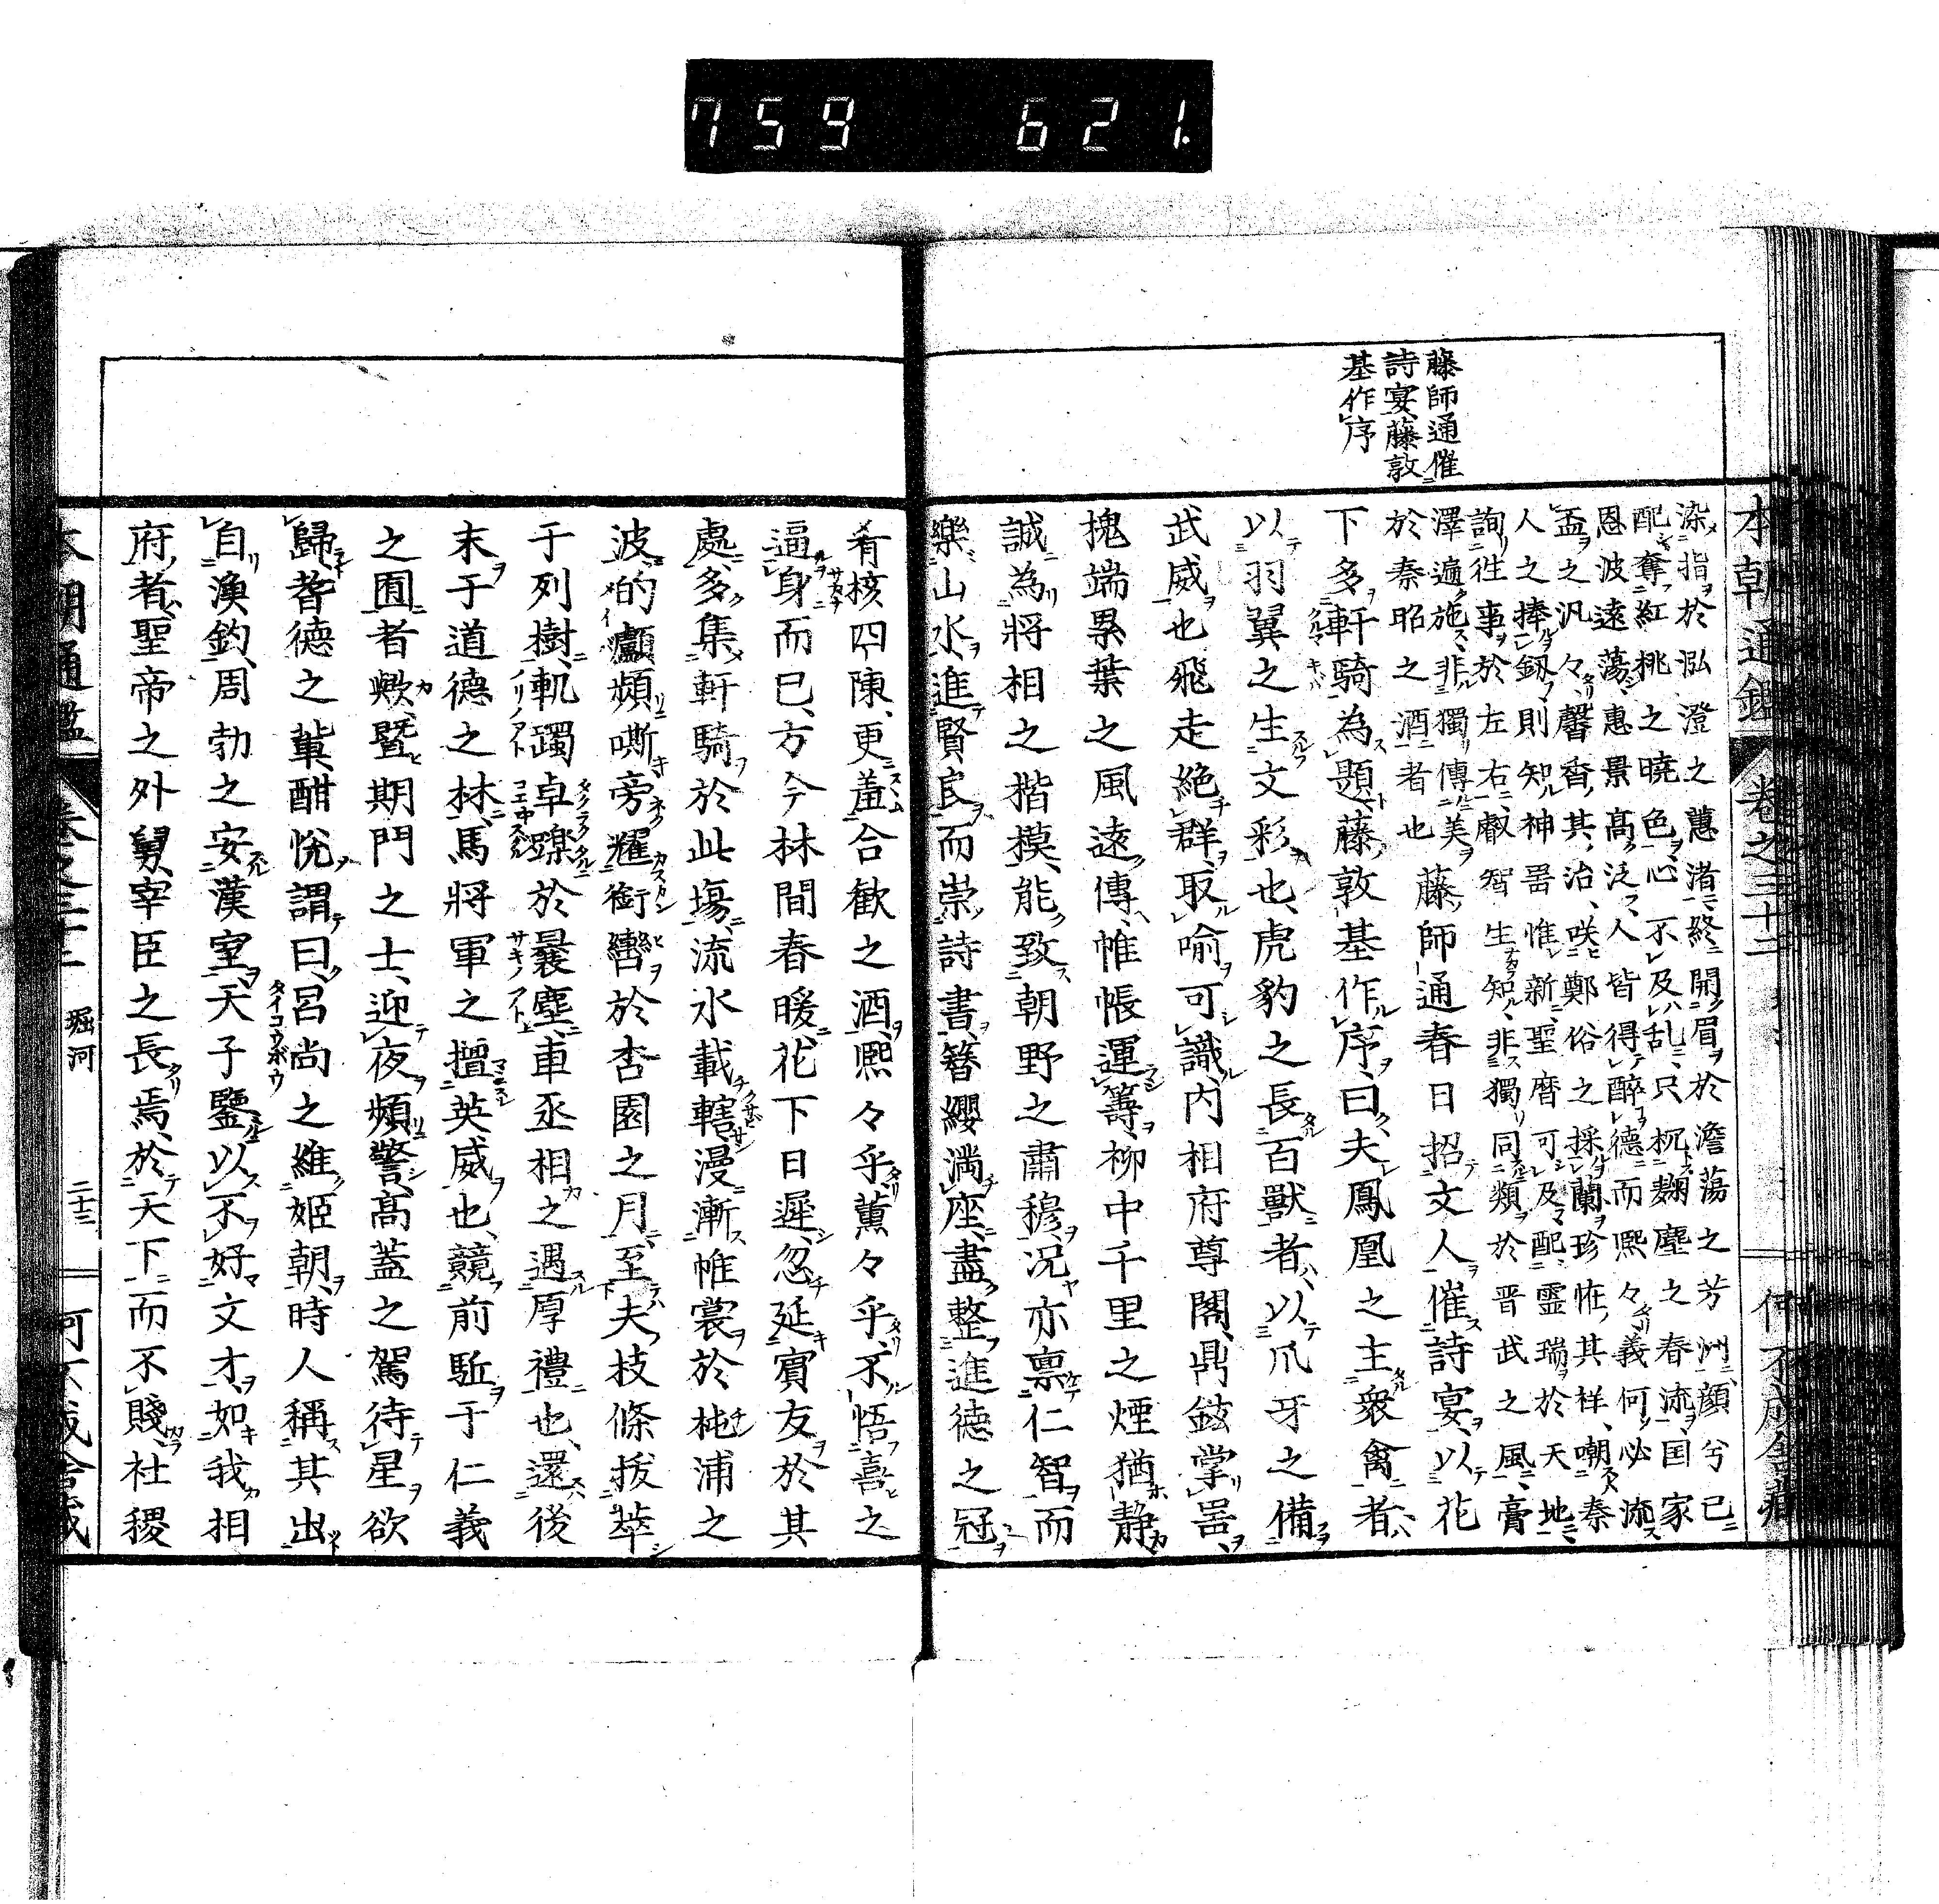 759 621.
藤師通催
詩宴藤敦
基作序
本朝通鑑 卷之三十二
染指於泓澄之蕙渚終開眉於澹蕩之芳洲顔兮已
配奪紅桃之曉色心不及乱只栀麹塵之春流国家
恩波遠蕩惠景高泛人皆得醉德而熙々義何必流
盃之汎々馨香其治咲鄭俗之採蘭珍恠其祥嘲秦
人之捧釼則知神㗊惟新聖暦可及配靈瑞於天地
詢徃事於左右叡智生知非獨同類於晋武之風膏
澤遍施非獨傳美
於秦昭之酒者也
藤師通春日招文人催詩宴以花
下多軒騎為題藤敦基作序曰夫鳳凰之主衆禽者
以羽翼之生文彩也虎豹之長百獸者以爪牙之備
武威也飛走絶群取喻可識内相府尊閤鼎鉉掌㗊
槐端累葉之風遠傳帷帳運籌柳中千里之煙猶静
誠為將相之揩模能致朝野之肅穆況亦禀仁智而
樂山水進賢良而崇詩書簪纓満座盡整進德之冠
肴核四陳更羞合歡之酒熙々乎薫々乎不悟喜之
逼身而已方今林間春暖花下日遲忽延賓友於其
處多集軒騎於此塲流水載轄漫漸帷裳於桃浦之
波的顱頻嘶旁耀銜轡於杏園之月至夫枝條抜萃
于列樹軌躅卓躒於曩塵車丞相之遇厚禮也還後
末于道德之林馬將軍之擅英威也競前駈于仁義
之囿者歟曁期門之士迎夜頻警高蓋之駕待星欲
歸耆德之輩酣悦謂曰呂尚之維姫朝時人稱其出
自漁釣周勃之安漢室天子鑒以不好文才如我相
府者聖帝之外舅宰臣之長焉於天下而不賤社稷
堀河 二十三